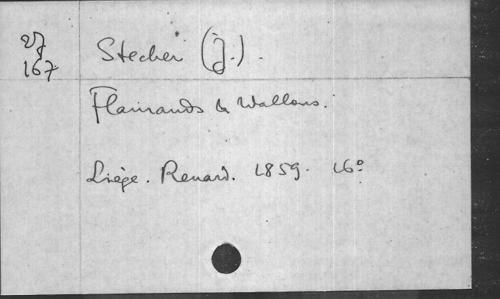 27 Stecher (J.).
167
Flamands & Wallons.
Liège. Renard. 1859. 16º